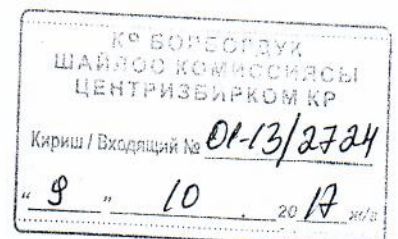 КР БОРБОРДУК
ШАЙЛОО КОМИССИЯСЫ
ЦЕНТРИЗБИРКОМ КР
Кириш / Входящий № 01-13/2724
"9" 10 . 2017 ж/г